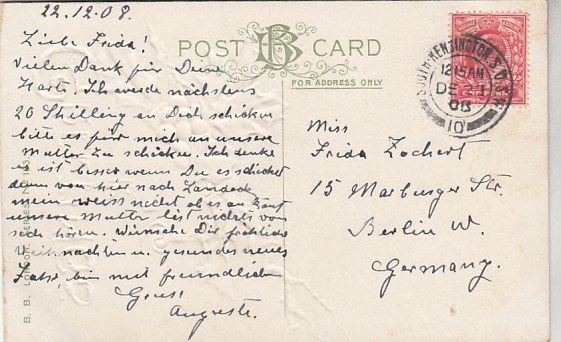 22.12.08.
Liebe Frida!
Vielen Dank für Deine
Karte. Ich werde nächstens
20 Shilling an Dich schicken
bitte es für mich an unsere
Mutter zu schicken. Ich denke
es ist besser wenn Du es schickst
denn von hier nach Landeck
mein weiss nicht ob es an kömt
unsere Mutter läst nichts von
sich hören. Wünsche Dir fröhliche
Weihnachten u. gesundes neues
Jahr, bin mit freundlichen
Gruss!
Auguste.
POST CARD
FOR ADDRESS ONLY
SOUTH KENSINGTON S.O.
12.15AM
DE 23
08
10
Miss
Frida Zochert
15 Marburger Str.
Berlin W.
Germany.
B. B. LONDON. SERIES